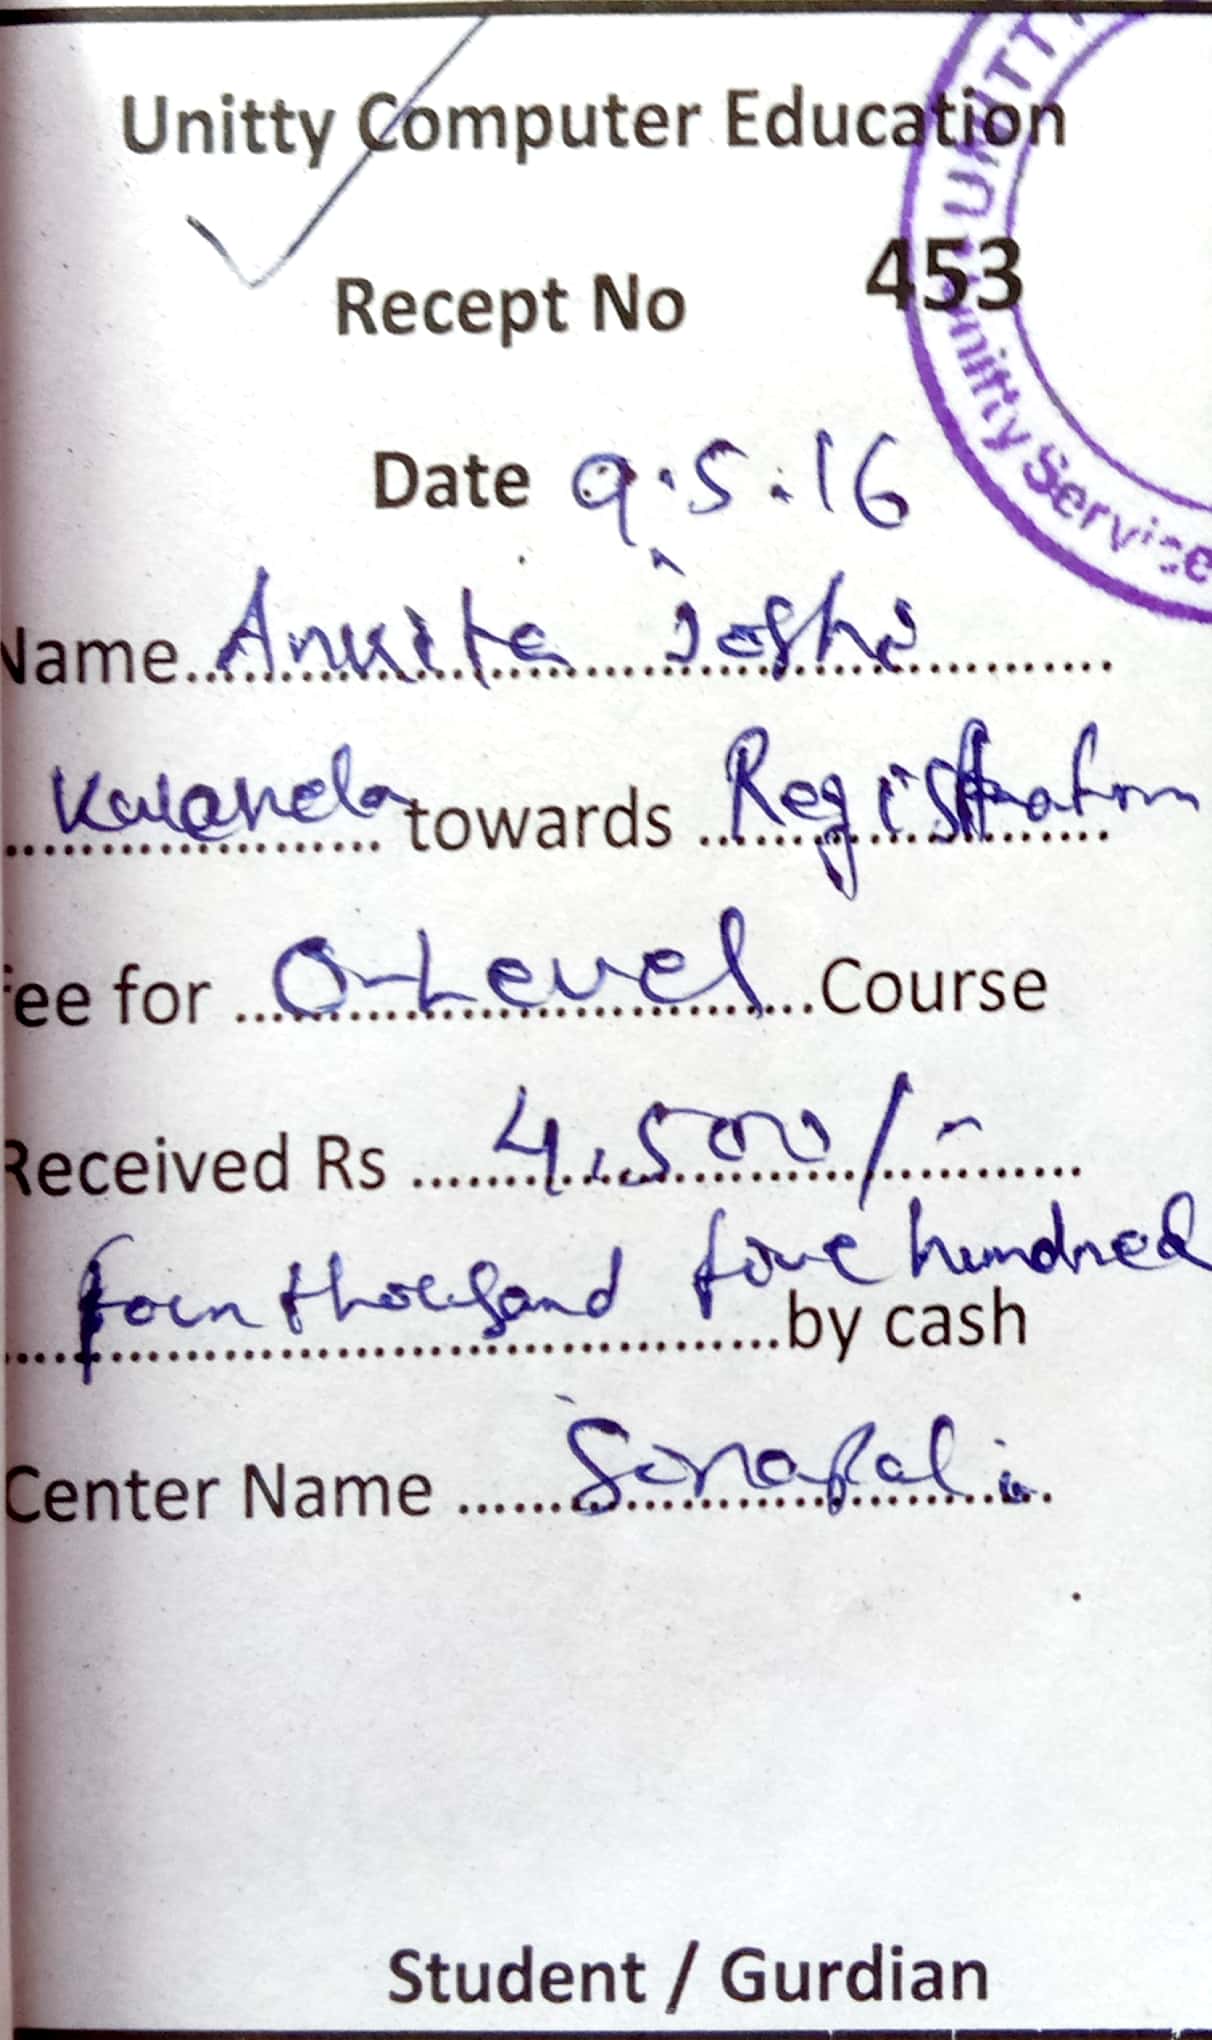 Unitty Computer Education
Recept No 453
Date 9.5.16
Name Ankita Joshi
towards Registration
fee for O-Level Course
Received Rs 4,500/-
four thousand five hundred
by cash
Center Name Sinapali
Student / Gurdian
UNITTY
Unitty Service